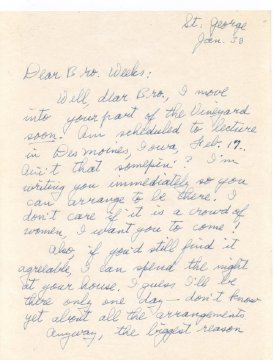 St. George
Jan. 30
Dear Bro. Weeks:
Well, dear Bro., I move
into your part of the Vineyard
soon. Am scheduled to lecture
in Des Moines, Iowa, Feb. 17.
Ain't that somepin'? I'm
writing you immediately so you
can arrange to be there. I
don't care if it is a crowd of
women, I want you to come!
Also, if you'd still find it
agreeable, I can spend the night
at your house. I guess I'll be
there only one day — don't know
yet about all the arrangements
Anyway, the biggest reason